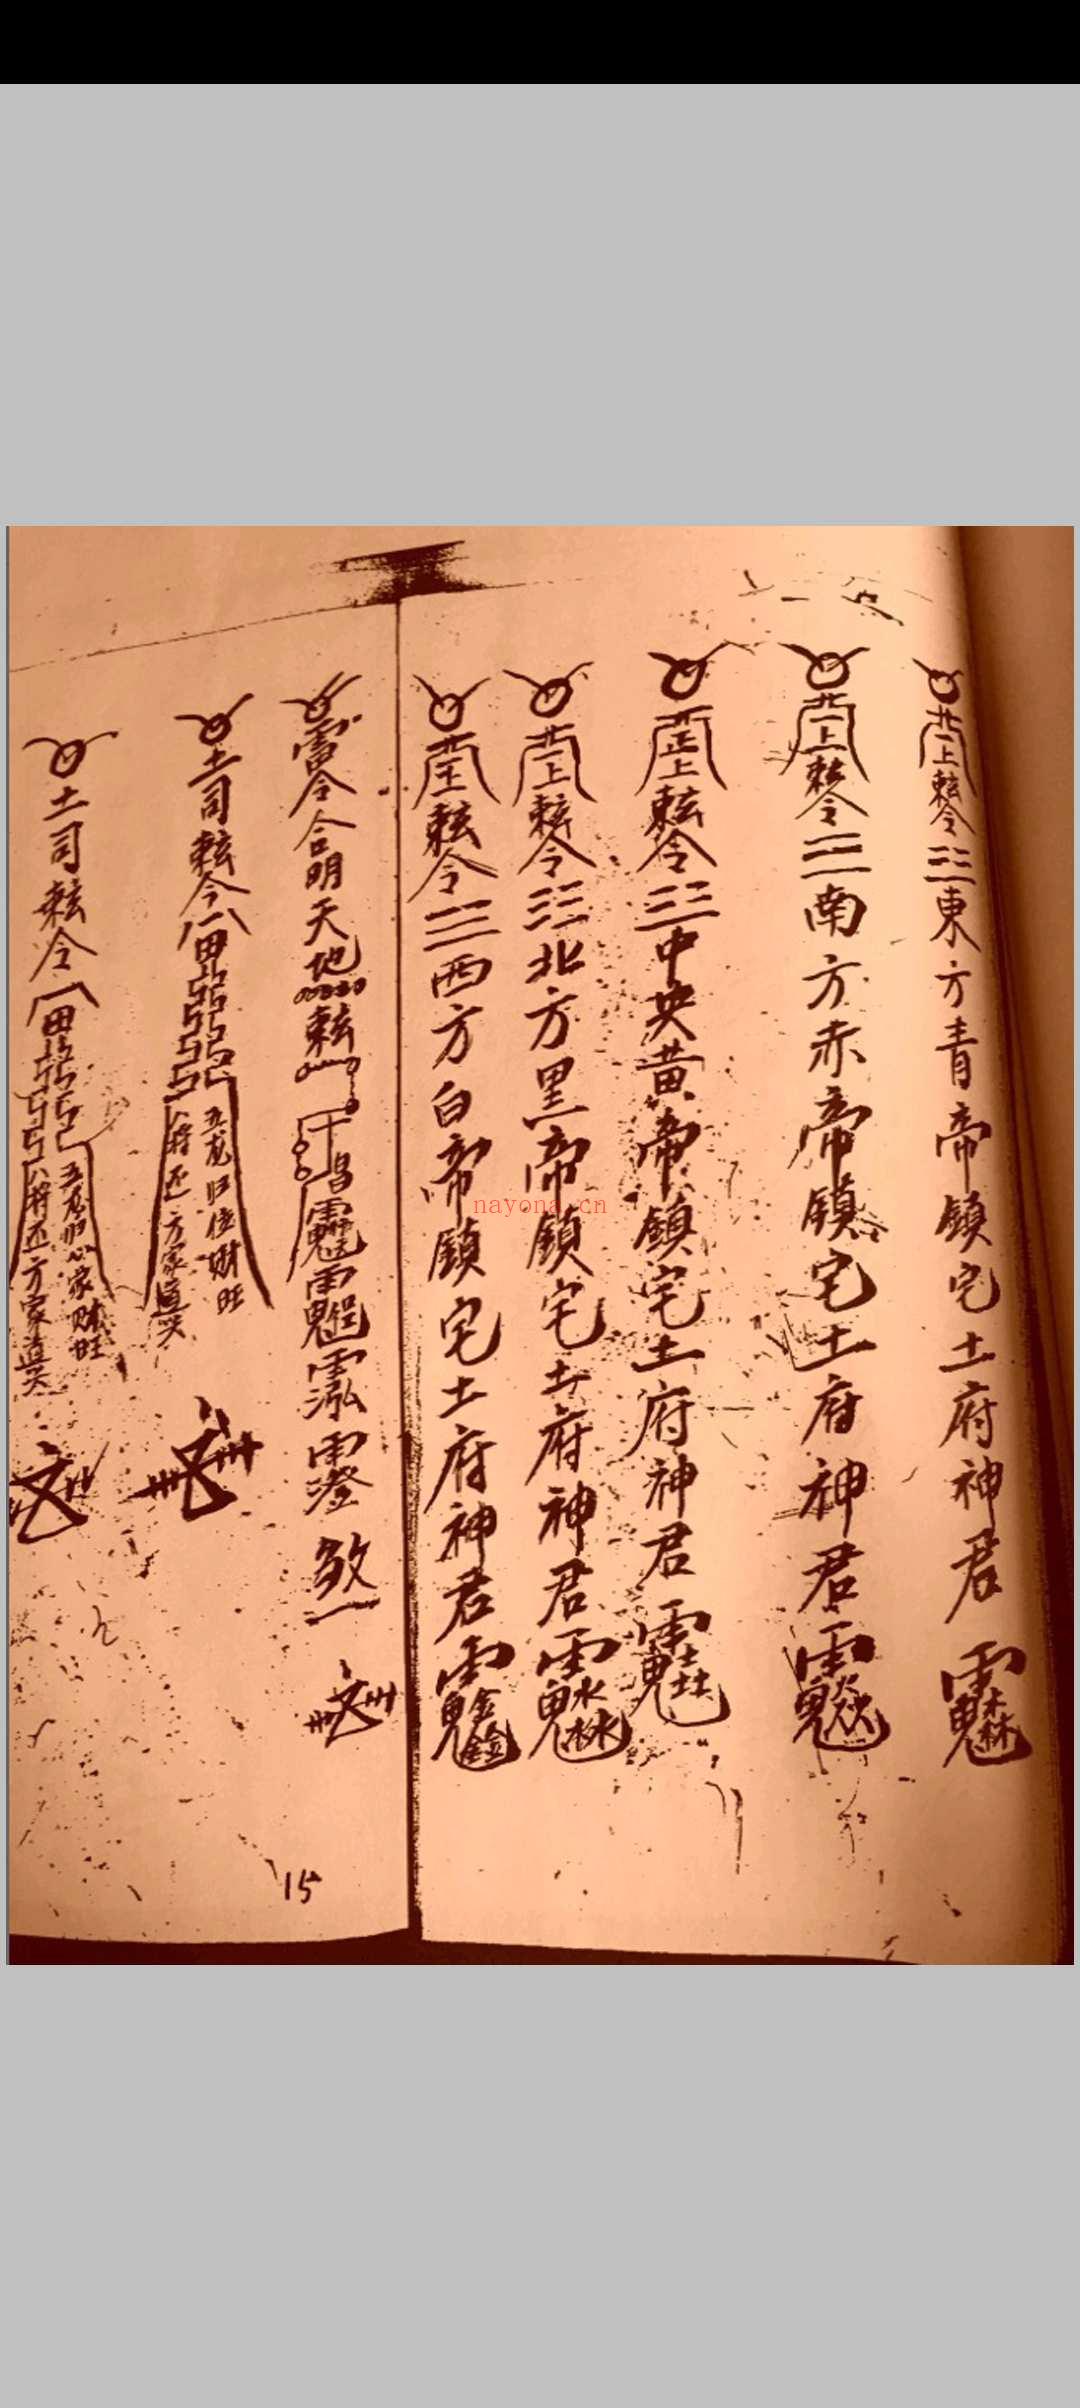 敕令三東方青帝鎮宅土府神君
敕令三南方赤帝鎮宅土府神君
敕令三中央黄帝鎮宅土府神君
敕令三北方黑帝鎮宅土府神君
敕令三西方白帝鎮宅土府神君
雷令合明天地敕
煞
土司敕令
五龙归位财旺
八将还方家道兴
土司敕令
五龙归位家财旺
八将还方家道兴
15
nayona.cn